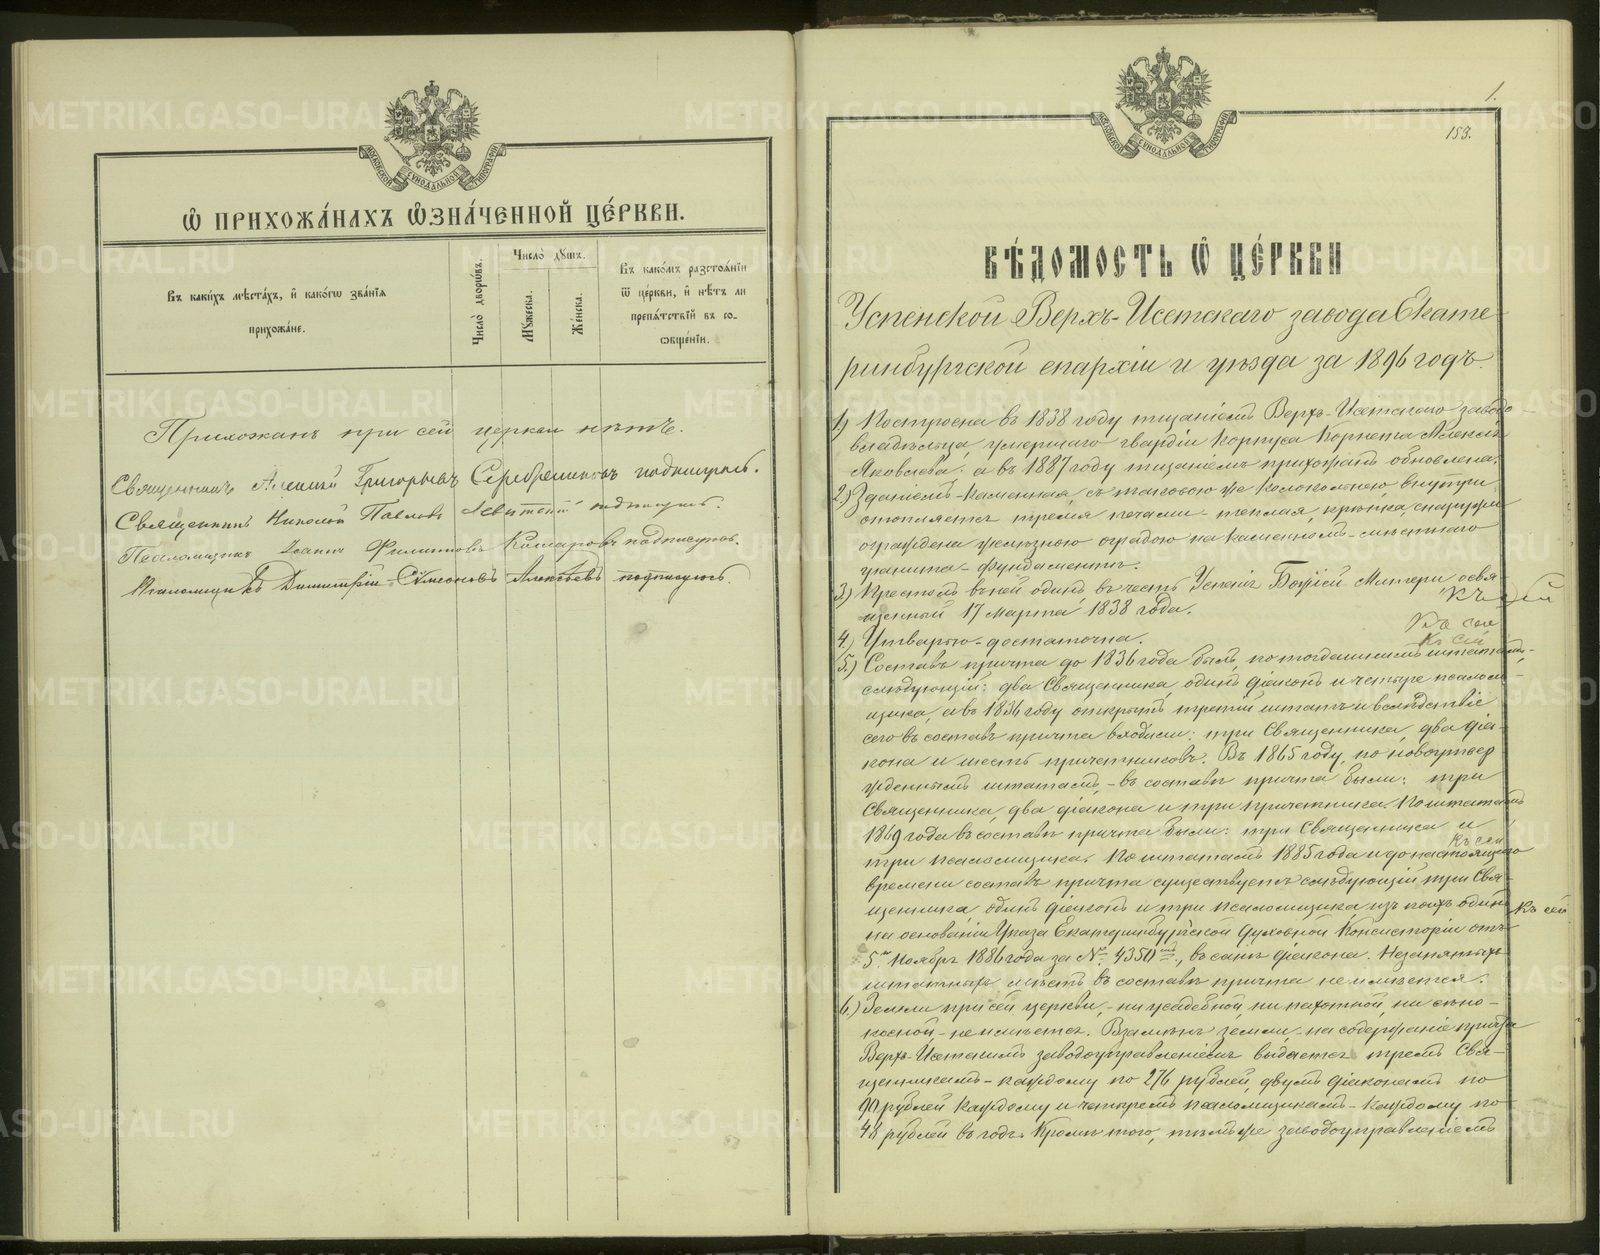 МОСКОВСКОЙ СѴНОДАЛЬНОЙ ТИПОГРАФІИ
Ѽ ПРИХОЖА́НАХЪ ѾЗНА́ЧЕННОЙ ЦЕ́РКВИ.
Въ каки́хъ мѣста́хъ, и҆ како́гѡ зва́нїѧ
прихожа́не.
Число̀ дворѡ́въ.
Число̀ дꙋ́шъ.
Мꙋ́жеска.
Же́нска.
Въ како́мъ разстоѧ́нїи
ѿ це́ркви, и҆ нѣ́тъ ли
препѧ́тствїй въ со-
ѻбще́нїи.
Прихожанъ при сей церкви нѣтъ.
Священникъ Алексій Григорьевъ Серебренниковъ подписуюсь.
Священникъ Николай Павловъ Левитскій подписуюсь.
Псаломщикъ Іоаннъ Филипповъ Комаровъ подписуюсь.
Псаломщикъ Димитрій Симеоновъ Алексѣевъ подписуюсь.
1.
153.
МОСКОВСКОЙ СѴНОДАЛЬНОЙ ТИПОГРАФІИ
ВѢ́ДОМОСТЬ Ѽ ЦЕ́РКВИ
Успенской Верхъ-Исетскаго завода Екате-
ринбургской епархіи и уѣзда за 1896 годъ.
1) Построена въ 1838 году тщаніемъ Верхъ-Исетскаго заводо-
владѣльца, умершаго гвардіи Корпуса Корнета Алексѣя
Яковлева: а въ 1887 году тщаніемъ прихожанъ обновлена.
2) Зданіемъ каменная, съ таковою же колокольнею, внутри
отопляется тремя печами - теплая, крѣпка, снаружи
ограждена желѣзною оградою на каменномъ - мѣстнаго
гранита - фундаментѣ.
3) Престолъ въ ней одинъ въ честь Успенія Божіей Матери, освя-
щенный 17 марта 1838 года.
Къ сей
Къ сей
Къ сей
4) Утварью - достаточна.
5) Составъ причта до 1836 года былъ, по тогдашнимъ штатамъ,
слѣдующій: два Священника, одинъ діаконъ и четыре псалом-
щика, а въ 1836 году открытъ третій штатъ и вслѣдствіе
сего въ составъ причта входили: три Священника, два діа-
кона и шесть причетниковъ. Въ 1865 году, по новоутвер-
жденнымъ штатамъ, - въ составѣ причта были: три
Священника, два діакона и три причетника. По штатамъ
1869 года въ составѣ причта были: три Священника и
Къ сей
три псаломщика. По штатамъ 1885 года и до настоящаго
времени составъ причта существуетъ слѣдующій: три Свя-
щенника, одинъ діаконъ и три псаломщика, изъ коихъ одинъ
Къ сей
на основаніи Указа Екатеринбургской Духовной Консисторіи отъ
5 Ноября 1886 года за № 4350, въ санѣ діакона. Незанятыхъ
штатныхъ мѣстъ въ составѣ причта не имѣется.
6) Земли при сей церкви, - ни усадебной, ни пахотной, ни сѣно-
косной, - не имѣется. Взамѣнъ земли - на содержаніе причта
Верхъ-Исетскимъ заводоуправленіемъ выдается тремъ Свя-
щенникамъ - каждому по 276 рублей, двумъ діаконамъ по
90 рублей каждому и четыремъ псаломщикамъ - каждому по
48 рублей въ годъ. Кромѣ того, тѣмъ же заводоуправленіемъ